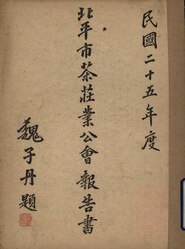 民國二十五年度
北平市茶莊業公會報告書
魏子丹題